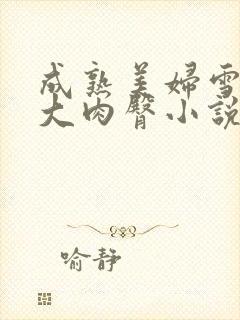 成熟美婦雪
大肉臀小說
喻静